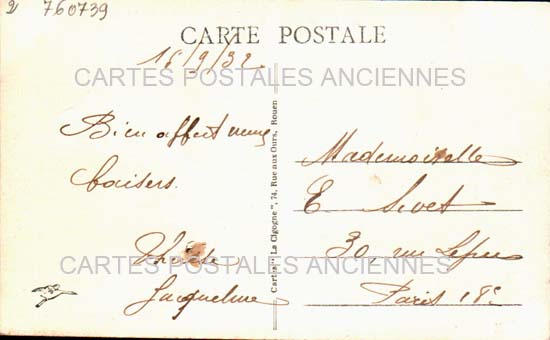 2 760739
CARTE POSTALE
18/9/32
CARTES POSTALES ANCIENNES
Bien affectueux
baisers.
Jacqueline
CARTES POSTALES ANCIENNES
Cartes "La Cigogne", 74, Rue aux Ours, Rouen
Mademoiselle
E Sivet
30, rue
Paris 18e